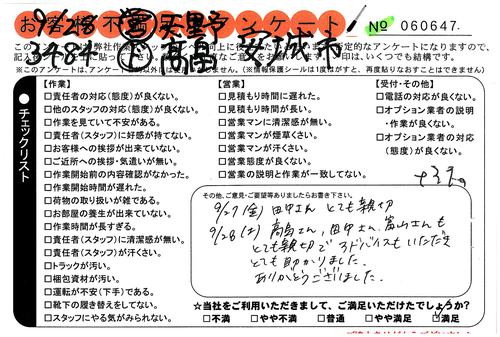 お客様不満足アンケート
No 060647
9/28 天野
3484 高島 安城市
【作業】
□責任者の対応(態度)が良くない。
□他のスタッフの対応(態度)が良くない。
□作業を見ていて不安がある。
□責任者(スタッフ)に好感が持てない。
□お客様への挨拶が出来ていない。
□ご近所への挨拶・気遣いが無い。
□作業開始前の内容確認がなかった。
□作業開始時間が遅れた。
□荷物の取り扱いが雑である。
□お部屋の養生が出来ていない。
□作業時間が長すぎる。
□責任者(スタッフ)に清潔感が無い。
□責任者(スタッフ)が汗くさい。
□トラックが汚い。
□梱包資材が汚い。
□運転が不安(下手)である。
□靴下の履き替えをしてない。
□スタッフにやる気がみられない。
【営業】
□見積もり時間に遅れた。
□見積もり時間が長い。
□営業マンに清潔感が無い。
□営業マンが煙草くさい。
□営業マンが汗くさい。
□営業態度が良くない。
□営業の説明と作業が一致してない。
【受付・その他】
□電話の対応が良くない。
□オプション業者の説明
・作業が良くない。
□オプション業者の対応
(態度)が良くない。
チェックリスト
その他、ご意見・ご要望等ありましたらお書き下さい。
9/27(金) 田中さん とても親切
9/28(土) 高島さん、田中さん、富山さんも
とても親切で アドバイスもいただき
とても助かりました。
ありがとうございました。
☆当社をご利用いただきまして、ご満足いただけたでしょうか?
□不満 □やや不満 □普通 □やや満足 □満足